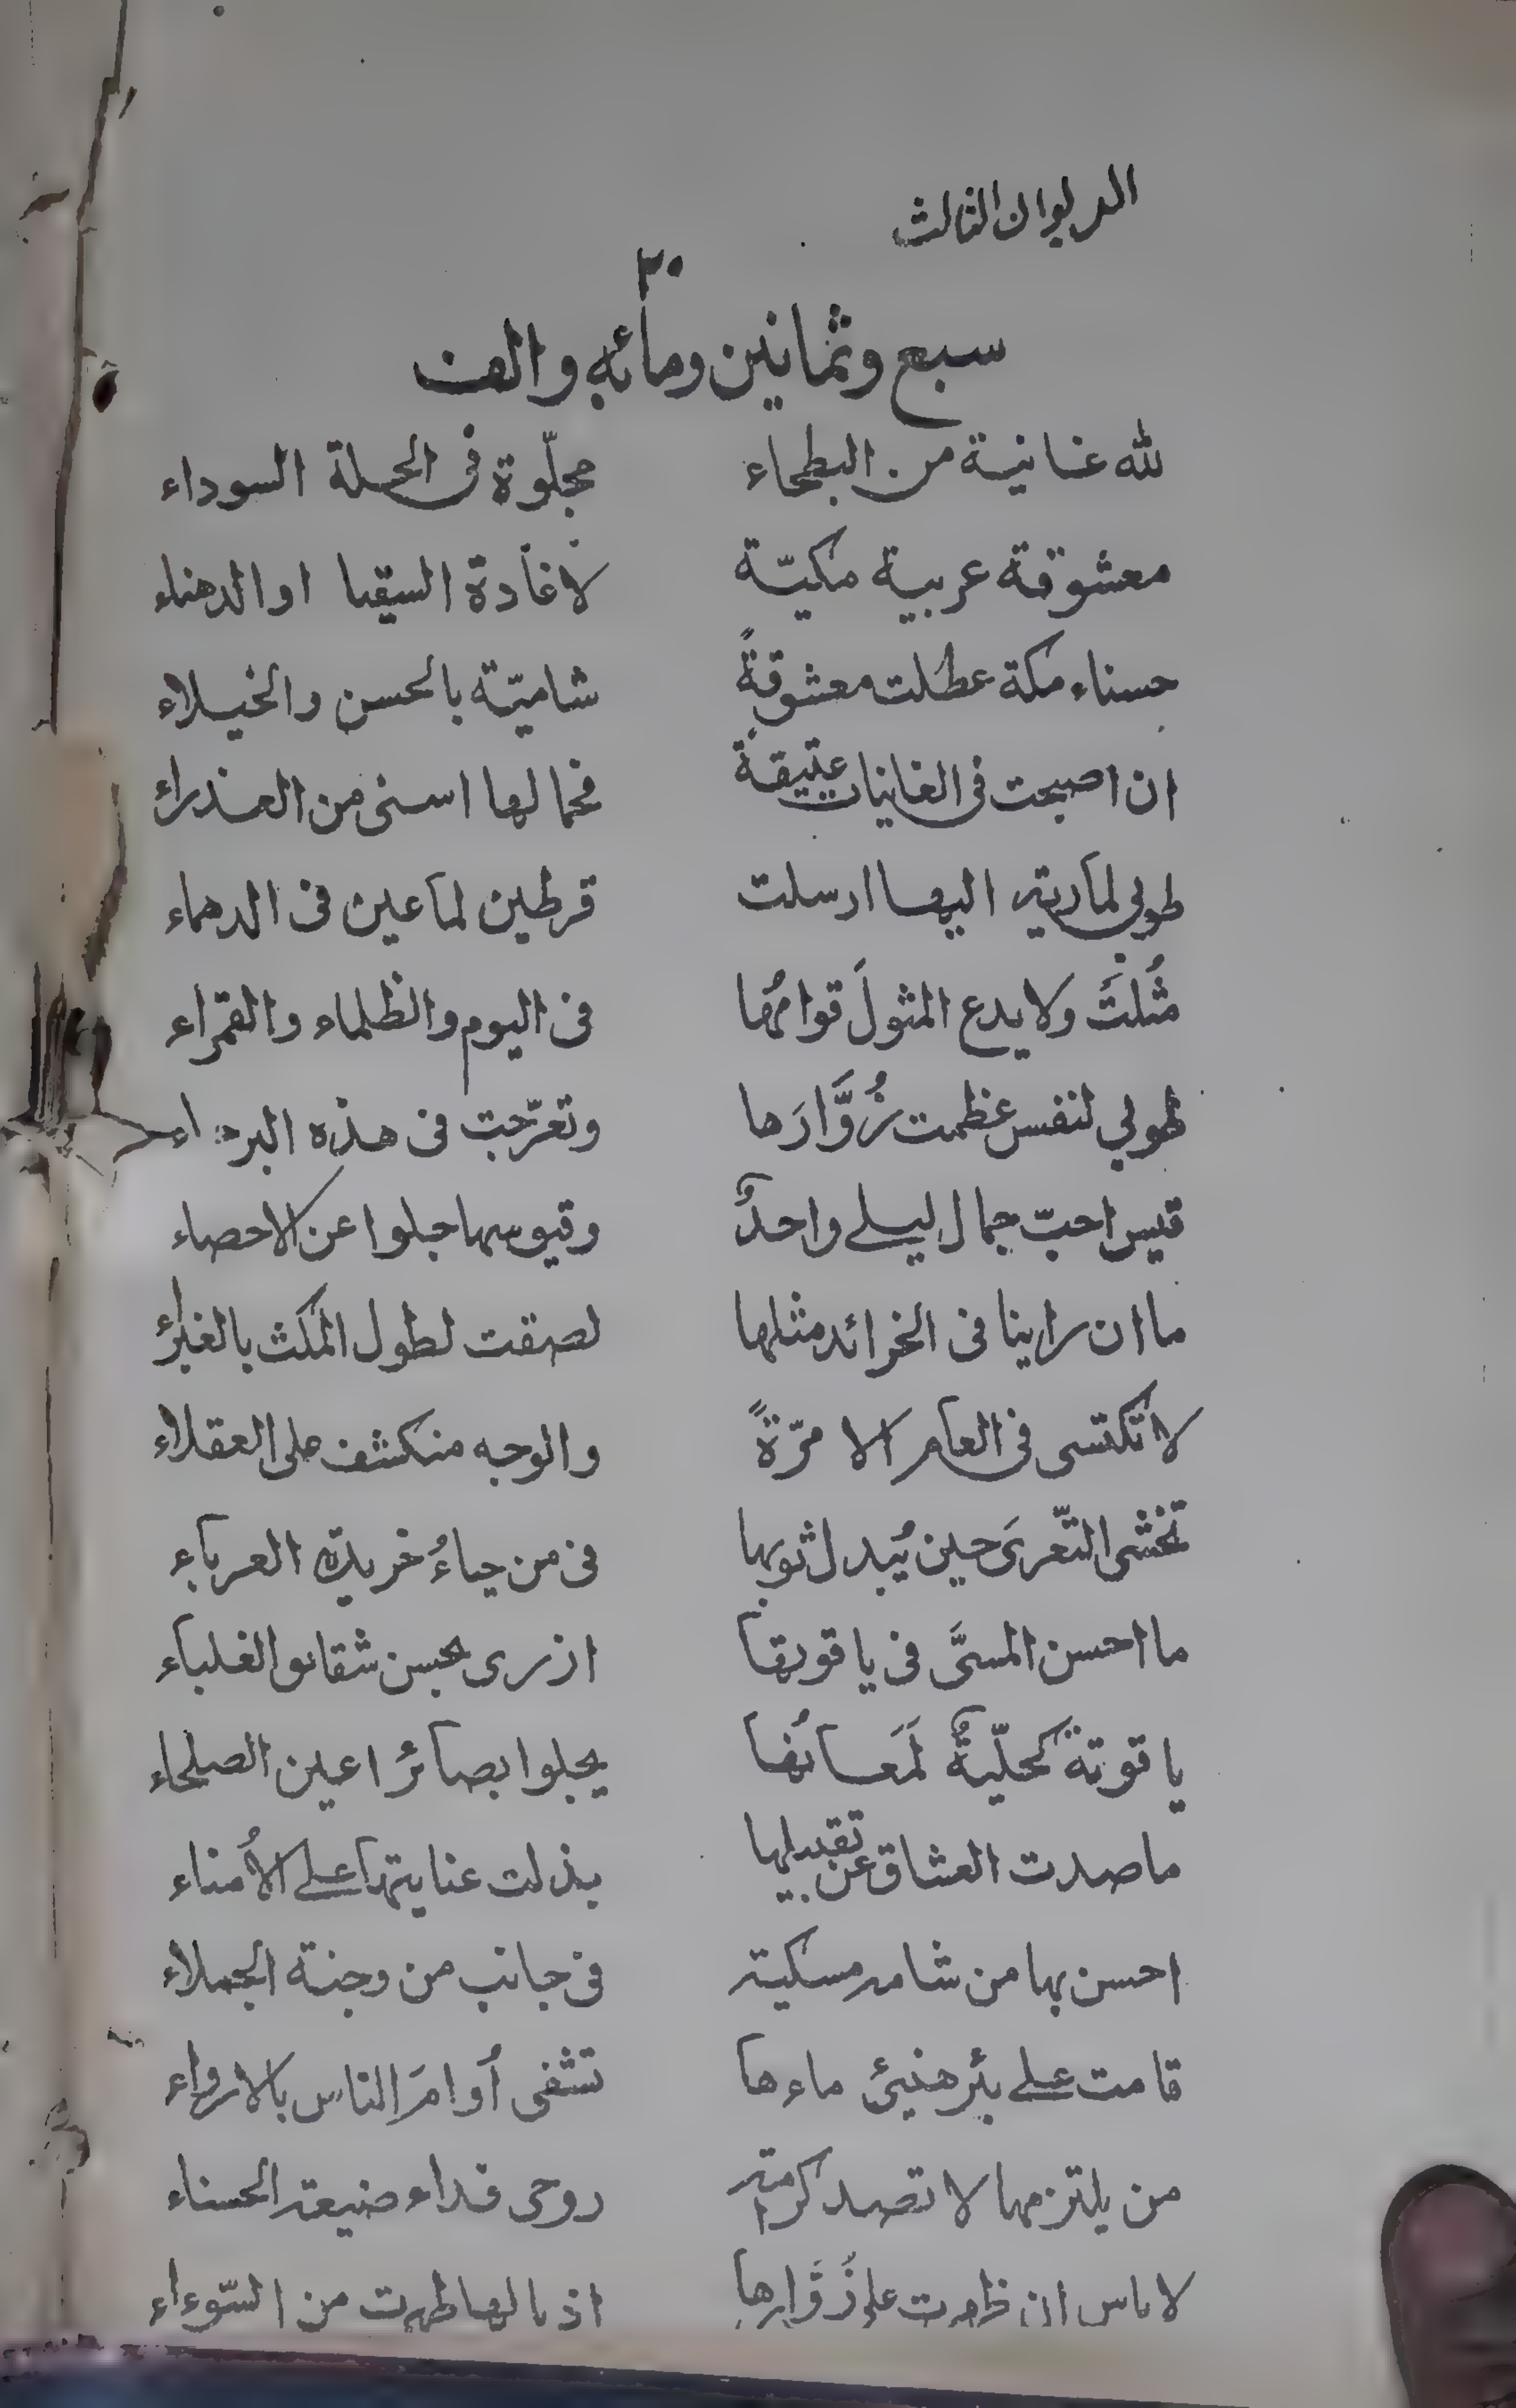 الديوان الثالث
٣٠
سبع وثمانين ومائة والف
لله غانية من البطحاء مجلّوة فى الحلة السوداء
معشوقة عربية مكيّة لا غادة السقيا او الدهناء
حسناء مكة عطلت معشوقةً شاميّة بالحسن والخيلاء
ان اصبحت فى الغانيات عتيقة فجمالها اسنى من العذراء
طوبي لمارية اليها ارسلت قرطين لماعين فى الدهماء
مثُلتَ ولا يدع المثولَ قوامُها فى اليوم والظلماء والقمراء
طوبي لنفس عظمت زُوَّارَها وتعرّجت فى هذه البرداء
قيس احبّ جمال ليلے واحدٌ وقيوسها جلوا عن الاحصاء
ما ان راينا فى الخرائد مثلها لصقت لطول المكث بالغبراء
لا تكتسى فى العام الا مرّةً والوجه منكشف على العقلاء
تخشى التّعرىَ حين يُبدل ثوبها فى من حياءُ خريدة العرباء
ما احسن المسمَّى فى ياقوتها ازرى بحسن شقائق الغلباء
ياقوتة كحليّةٌ لَمَعانُها يجلوا بصائر اعين الصلحاء
ما صدت العشاق عن تقبيلها بذلت عنايتها علے الاُمناء
احسن بها من شامة مسكية فى جانب من وجنة الجملاء
قامت علے بئر هنيئ ماءها تشفى اُوامَ الناس بالارواء
من يلتزمها لا تصد كرامة روحى فداء صنيعة الحسناء
لا باس ان علے زُوَّارها من السّوءاء